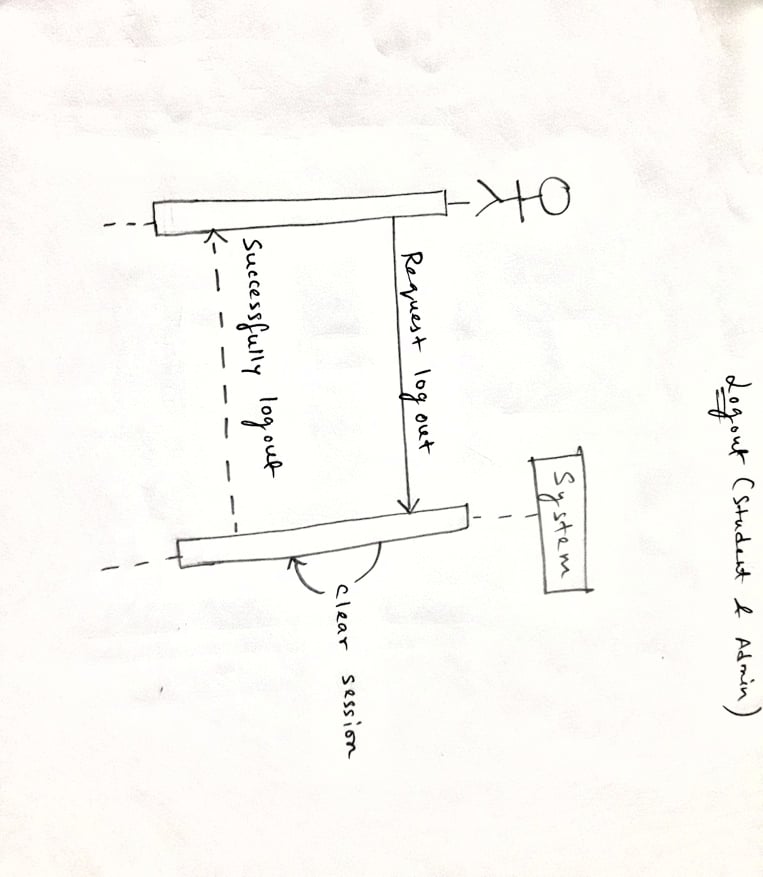 Logout (Student & Admin)
System
Request logout
clear session
Successfully logout